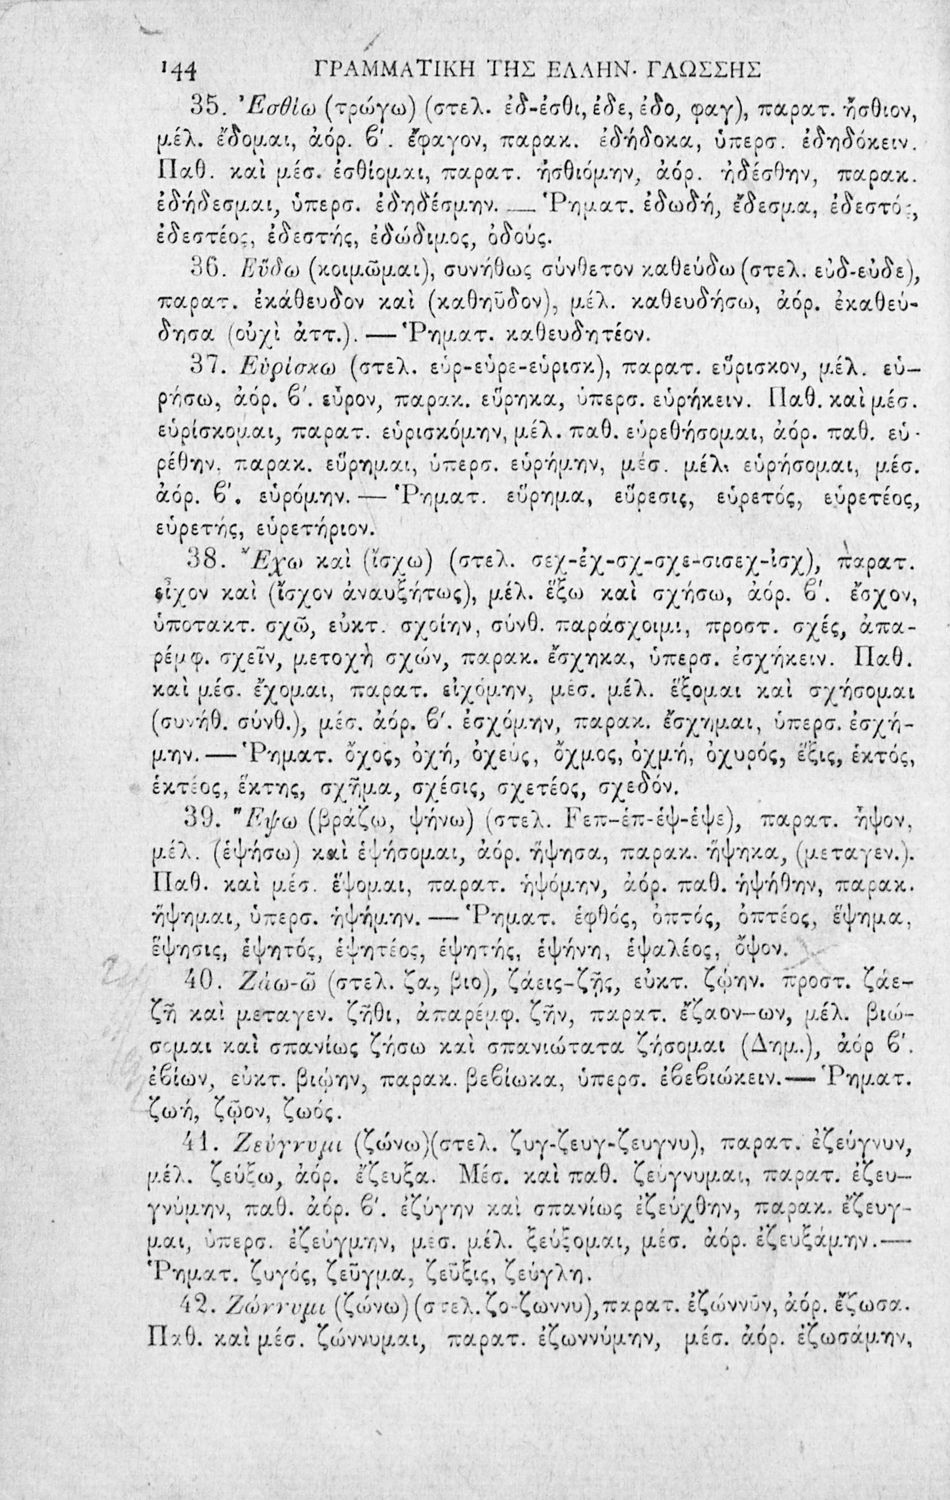 144 ΓΡΑΜΜΑΤΙΚΗ ΤΗΣ ΕΛΛΗΝ. ΓΛΩΣΣΗΣ
35. Ἐσθίω (τρώγω) (στελ. ἐδ-ἐσθι, ἐδε, ἐδο, φαγ), παρατ. ἤσθιον,
μέλ. ἔδομαι, ἀόρ. β΄. ἔφαγον, παρακ. ἐδήδοκα, ὑπερσ. ἐδηδόκειν.
Παθ. καὶ μέσ. ἐσθίομαι, παρατ. ἠσθιόμην, ἀόρ. ἠδέσθην, παρακ.
ἐδήδεσμαι, ὑπερσ. ἐδηδέσμην. — Ῥηματ. ἐδωδή, ἔδεσμα, ἐδεστός,
ἐδεστέος, ἐδεστής, ἐδώδιμος, ὀδούς.
36. Εὕδω (κοιμῶμαι), συνήθως σύνθετον καθεύδω (στελ. εὑδ-εὑδε),
παρατ. ἐκάθευδον καὶ (καθηῦδον), μέλ. καθευδήσω, ἀόρ. ἐκαθεύ-
δησα (οὐχὶ ἀττ.). — Ῥηματ. καθευδητέον.
37. Εὑρίσκω (στελ. εὑρ-εὑρε-εὑρισκ), παρατ. εὕρισκον, μέλ. εὑ-
ρήσω, ἀόρ. β΄. εὗρον, παρακ. εὕρηκα, ὑπερσ. εὑρήκειν. Παθ. καὶ μέσ.
εὑρίσκομαι, παρατ. εὑρισκόμην, μέλ. παθ. εὑρεθήσομαι, ἀόρ. παθ. εὑ-
ρέθην, παρακ. εὕρημαι, ὑπερσ. εὑρήμην, μέσ. μέλ. εὑρήσομαι, μέσ.
ἀόρ. β΄. εὑρόμην. — Ῥηματ. εὕρημα, εὕρεσις, εὑρετός, εὑρετέος,
εὑρετής, εὑρετήριον.
38. Ἔχω καὶ (ἴσχω) (στελ. σεχ-ἐχ-σχ-σχε-σισεχ-ἰσχ), παρατ.
εἶχον καὶ (ἴσχον ἀναυξήτως), μέλ. ἕξω καὶ σχήσω, ἀόρ. β΄. ἔσχον,
ὑποτακτ. σχῶ, εὐκτ. σχοίην, σύνθ. παράσχοιμι, προστ. σχές, ἀπα-
ρέμφ. σχεῖν, μετοχὴ σχών, παρακ. ἔσχηκα, ὑπερσ. ἐσχήκειν. Παθ.
καὶ μέσ. ἔχομαι, παρατ. εἰχόμην, μέσ. μέλ. ἕξομαι καὶ σχήσομαι
(συνήθ. σύνθ.), μέσ. ἀόρ. β΄. ἐσχόμην, παρακ. ἔσχημαι, ὑπερσ. ἐσχή-
μην. — Ῥηματ. ὄχος, ὀχή, ὀχεύς, ὄχμος, ὀχμή, ὀχυρός, ἕξις, ἑκτός,
ἑκτέος, ἕκτης, σχῆμα, σχέσις, σχετέος, σχεδόν.
39. Ἕψω (βράζω, ψήνω) (στελ. Fεπ-ἑπ-ἑψ-ἑψε), παρατ. ἧψον,
μέλ. (ἑψήσω) καὶ ἑψήσομαι, ἀόρ. ἥψησα, παρακ. ἥψηκα, (μεταγεν.).
Παθ. καὶ μέσ. ἕψομαι, παρατ. ἡψόμην, ἀόρ. παθ. ἡψήθην, παρακ.
ἥψημαι, ὑπερσ. ἡψήμην. — Ῥηματ. ἑφθός, ὀπτός, ὀπτέος, ἕψημα,
ἕψησις, ἑψητός, ἑψητέος, ἑψητής, ἑψήνη, ἑψαλέος, ὄψον.
40. Ζάω-ῶ (στελ. ζα, βιο), ζάεις-ζῇς, εὐκτ. ζῴην. προστ. ζάε-
ζῆ καὶ μεταγεν. ζῆθι, ἀπαρέμφ. ζῆν, παρατ. ἔζαον-ων, μέλ. βιώ-
σομαι καὶ σπανίως ζήσω καὶ σπανιώτατα ζήσομαι (Δημ.), ἀόρ β΄.
ἐβίων, εὐκτ. βιῴην, παρακ. βεβίωκα, ὑπερσ. ἐβεβιώκειν. — Ῥηματ.
ζωή, ζῷον, ζωός.
41. Ζεύγνυμι (ζώνω)(στελ. ζυγ-ζευγ-ζευγνυ), παρατ. ἐζεύγνυν,
μέλ. ζεύξω, ἀόρ. ἔζευξα. Μέσ. καὶ παθ. ζεύγνυμαι, παρατ. ἐζευ-
γνύμην, παθ. ἀόρ. β΄. ἐζύγην καὶ σπανίως ἐζεύχθην, παρακ. ἔζευγ-
μαι, ὑπερσ. ἐζεύγμην, μέσ. μέλ. ξεύξομαι, μέσ. ἀόρ. ἐζευξάμην. —
Ῥηματ. ζυγός, ζεῦγμα, ζεῦξις, ζεύγλη.
42. Ζώννυμι (ζώνω) (στελ. ζο-ζωννυ), παρατ. ἐζώννῡν, ἀόρ. ἔζωσα.
Παθ. καὶ μέσ. ζώννυμαι, παρατ. ἐζωννύμην, μέσ. ἀόρ. ἐζωσάμην,